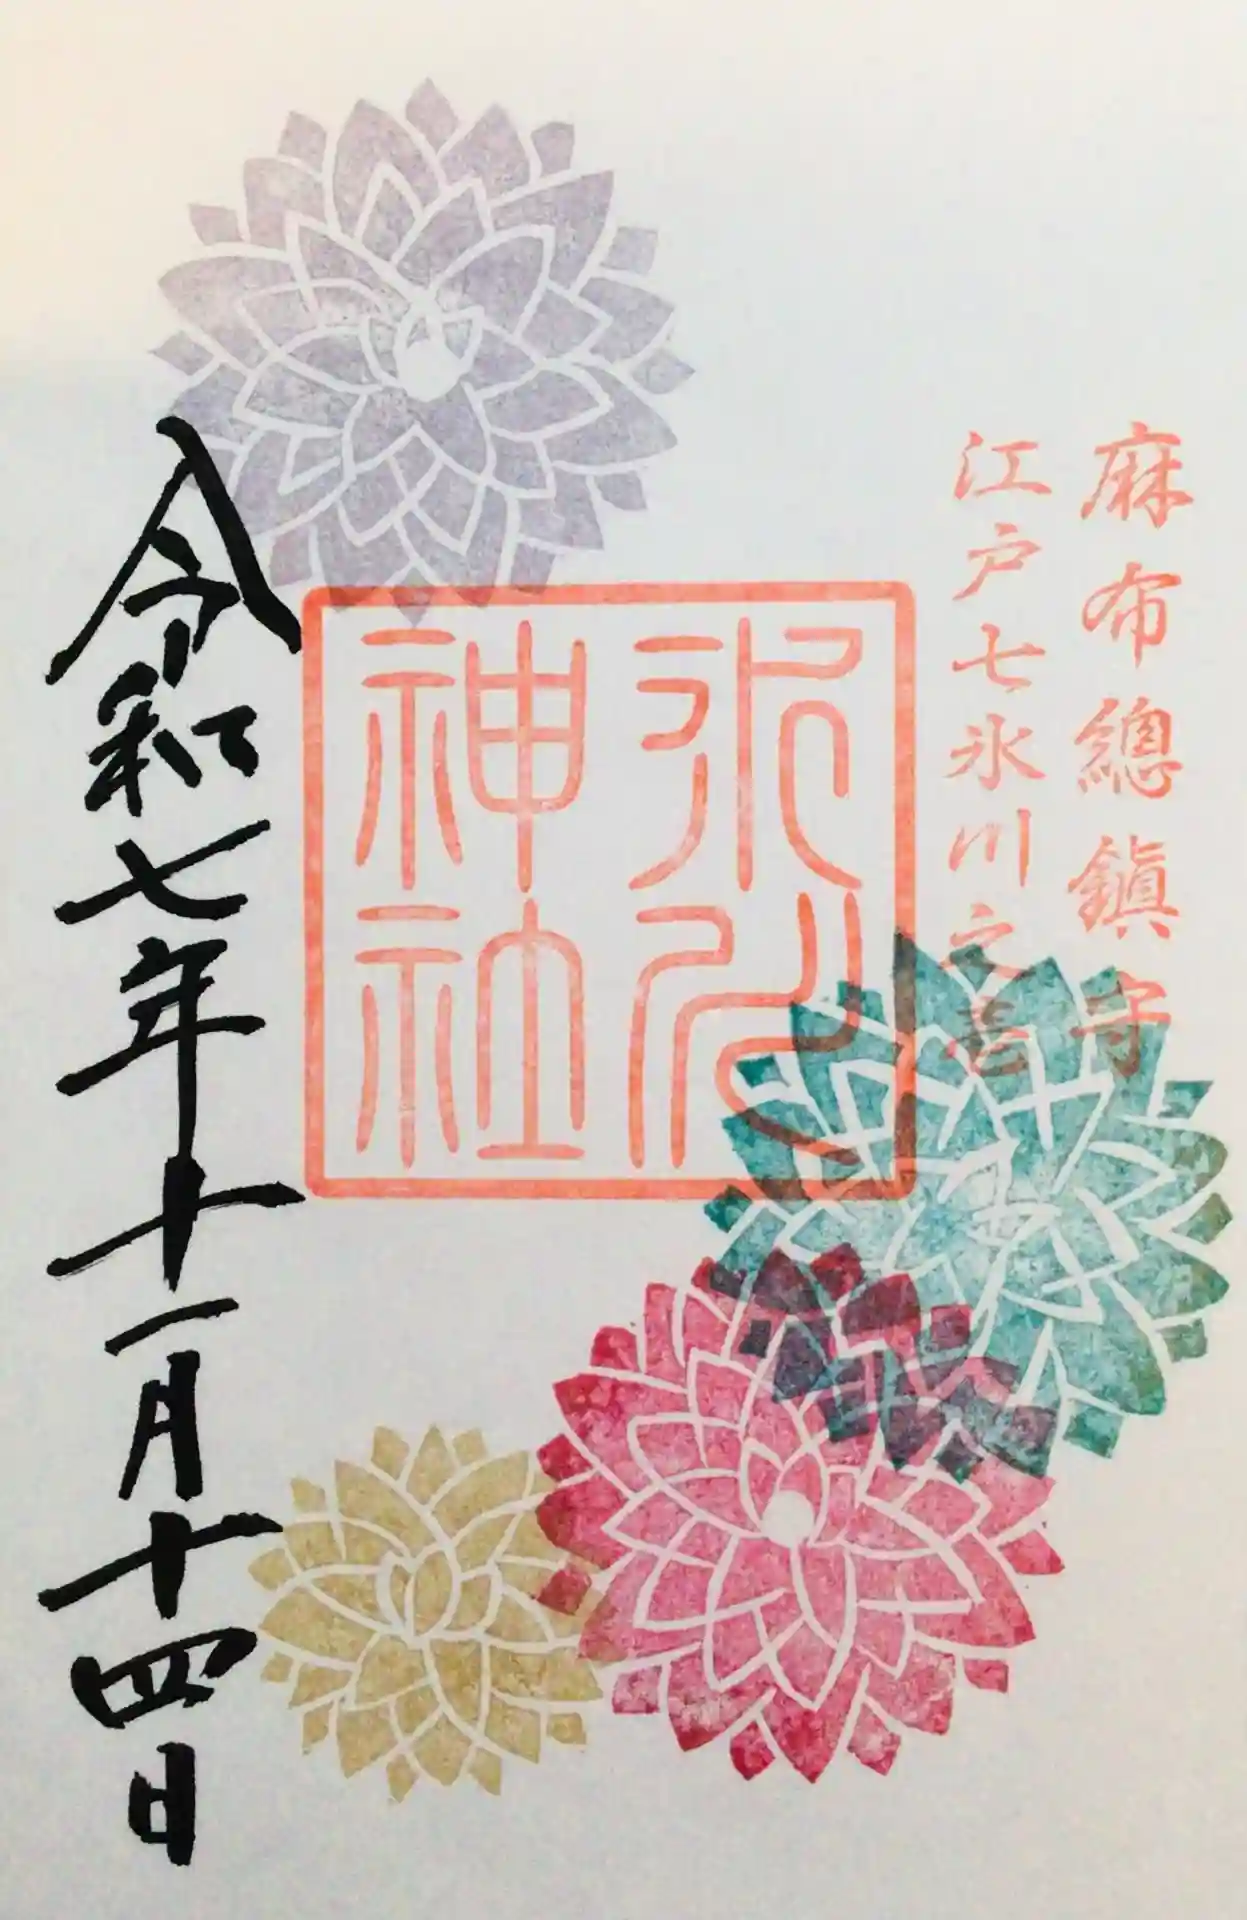 麻布總鎮守
江戸七氷川之壱
氷川
神社
令和七年十一月十四日